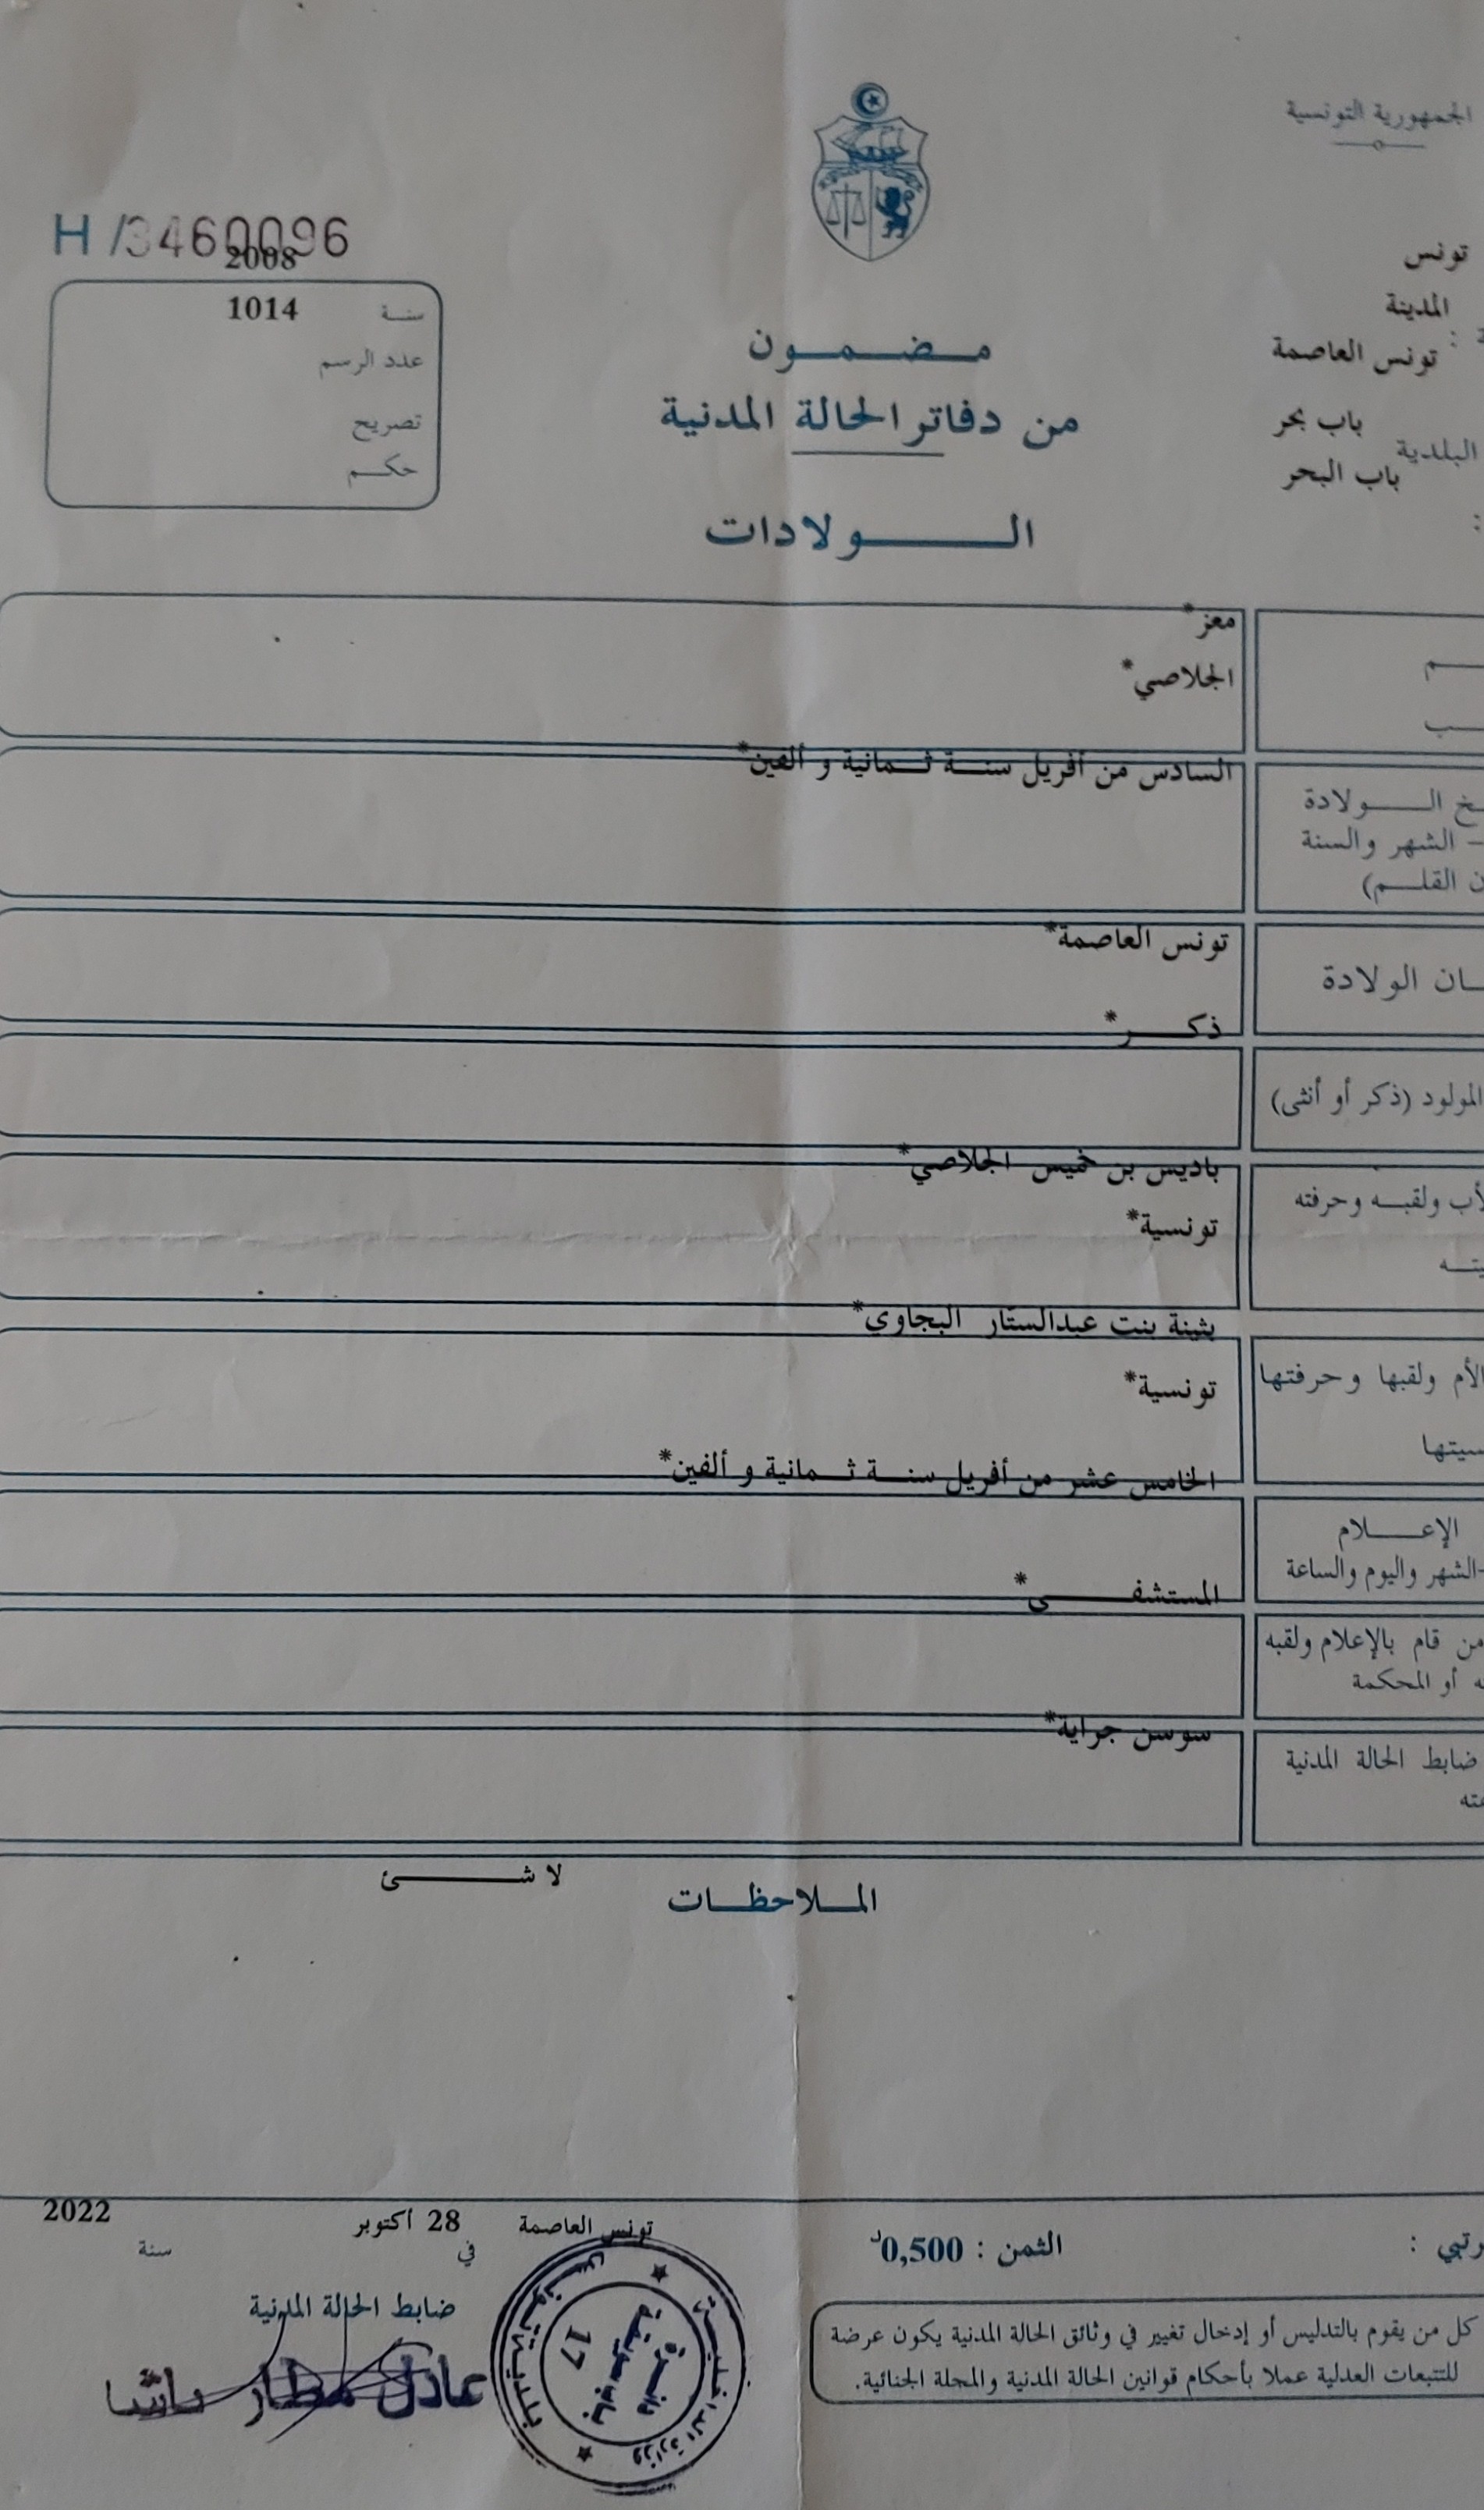 الجمهورية التونسية
H /3460096
2008
تونس
المدينة
تونس العاصمة
باب بحر
البلدية
باب البحر
سنة 1014
عدد الرسم
تصريح
حكم
مضمون
من دفاتر الحالة المدنية
الولادات
معز*
الجلاصي*
السادس من أفريل سنة ثمانية و ألفين*
الولادة
– الشهر والسنة
القلم)
تونس العاصمة*
الولادة
ذكر*
المولود (ذكر أو أنثى)
باديس بن خميس الجلاصي*
ولقبه وحرفته
تونسية*
بثينة بنت عبدالستار البجاوي*
الأم ولقبها وحرفتها
تونسية*
الخامس عشر من أفريل سنة ثمانية و ألفين*
الإعلام
-الشهر واليوم والساعة
المستشفى*
من قام بالإعلام ولقبه
أو المحكمة
سوسن جراية*
ضابط الحالة المدنية
لا شئ
الملاحظات
تونس العاصمة 28 أكتوبر 2022
في سنة
الثمن : 0,500د
ضابط الحالة المدنية
عادل عطار باشا
كل من يقوم بالتدليس أو إدخال تغيير في وثائق الحالة المدنية يكون عرضة
للتتبعات العدلية عملا بأحكام قوانين الحالة المدنية والمجلة الجنائية.
وزارة الداخلية
بلدية تونس
دائرة
باب سويقة
17